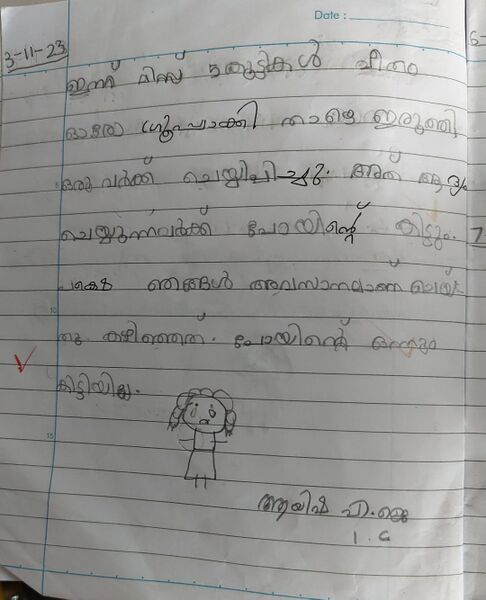 Date :
3-11-23
6-
ഇന്ന് മിസ്സ് 5 കുട്ടികൾ വീതം
ഓരോ ഗ്രൂപ്പാക്കി താഴെ ഇരുത്തി
ഒരു വർക്ക് ചെയ്യിപ്പിച്ചു. അത് ആദ്യം
ചെയ്യുന്നവർക്ക് പോയിന്റ് കിട്ടും.
7
പക്ഷെ ഞങ്ങൾ അവസാനമാണ് ചെയ്
തു കഴിഞ്ഞത്. പോയിന്റ് ഒന്നും
കിട്ടിയില്ല.
ആയിഷ പി.കെ
1. C